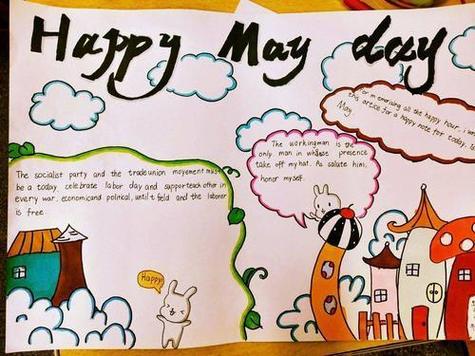 Happy May day
for memorising all the happy hour, I
this article for a happy note for today,
May.
The workingman is the
only man in whose presence
take off my hat. As salute him,
honor myself.
The socialist party and the trade union movement must
be a today, celebrate labor day and support each other in
every war. economic and political, until t field and the laborer
is free.
Happy